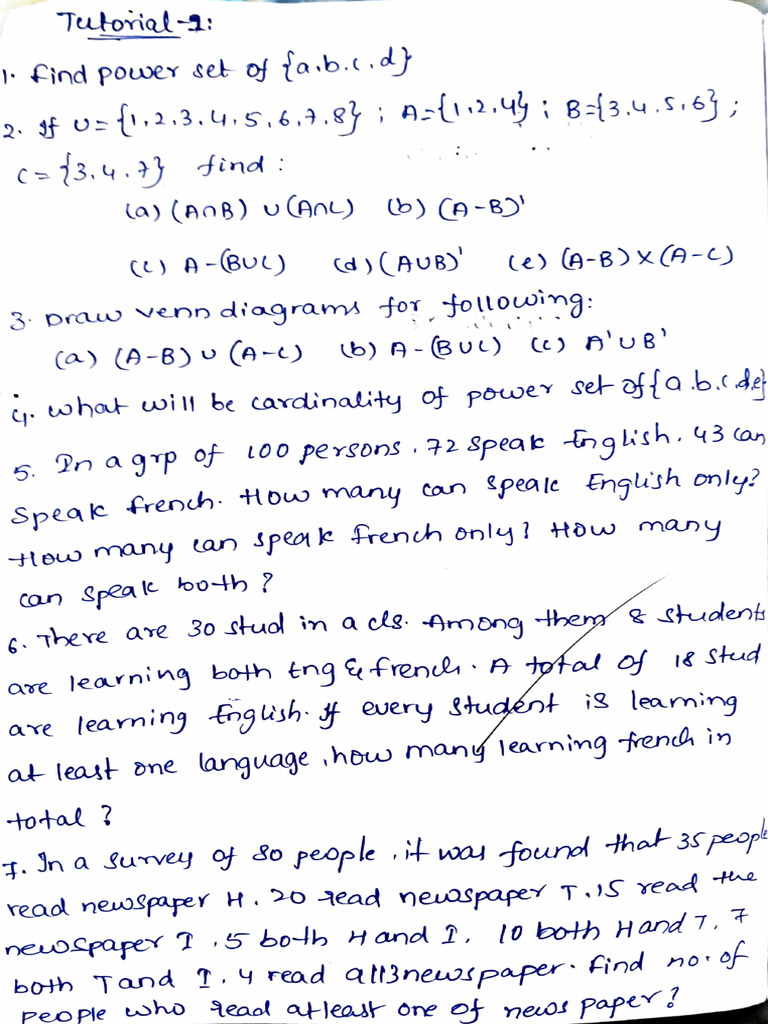 Tutorial-2:
1. Find power set of {a.b.c.d}
2. If U={1,2,3,4,5,6,7,8} ; A={1,2,4} ; B={3,4,5,6} ;
C={3,4,7} find :
(a) (A∩B) ∪ (A∩C) (b) (A-B)'
(c) A-(B∪C) (d) (A∪B)' (e) (A-B)×(A-C)
3. Draw venn diagrams for following:
(a) (A-B) ∪ (A-C) (b) A-(B∪C) (c) A'∪B'
4. What will be cardinality of power set of {a.b.c.d.e}
5. In a grp of 100 persons, 72 speak English. 43 can
speak french. How many can speak English only?
How many can speak french only? How many
can speak both?
6. There are 30 stud in a cls. Among them 8 students
are learning both Eng & french. A total of 18 stud
are learning English. If every student is learning
at least one language, how many learning french in
total ?
7. In a survey of 80 people, it was found that 35 people
read newspaper H. 20 read newspaper T. 15 read the
newspaper I. 5 both H and I, 10 both H and T, 7
both T and I. 4 read all 3 newspaper. Find no. of
people who read atleast one of news paper?